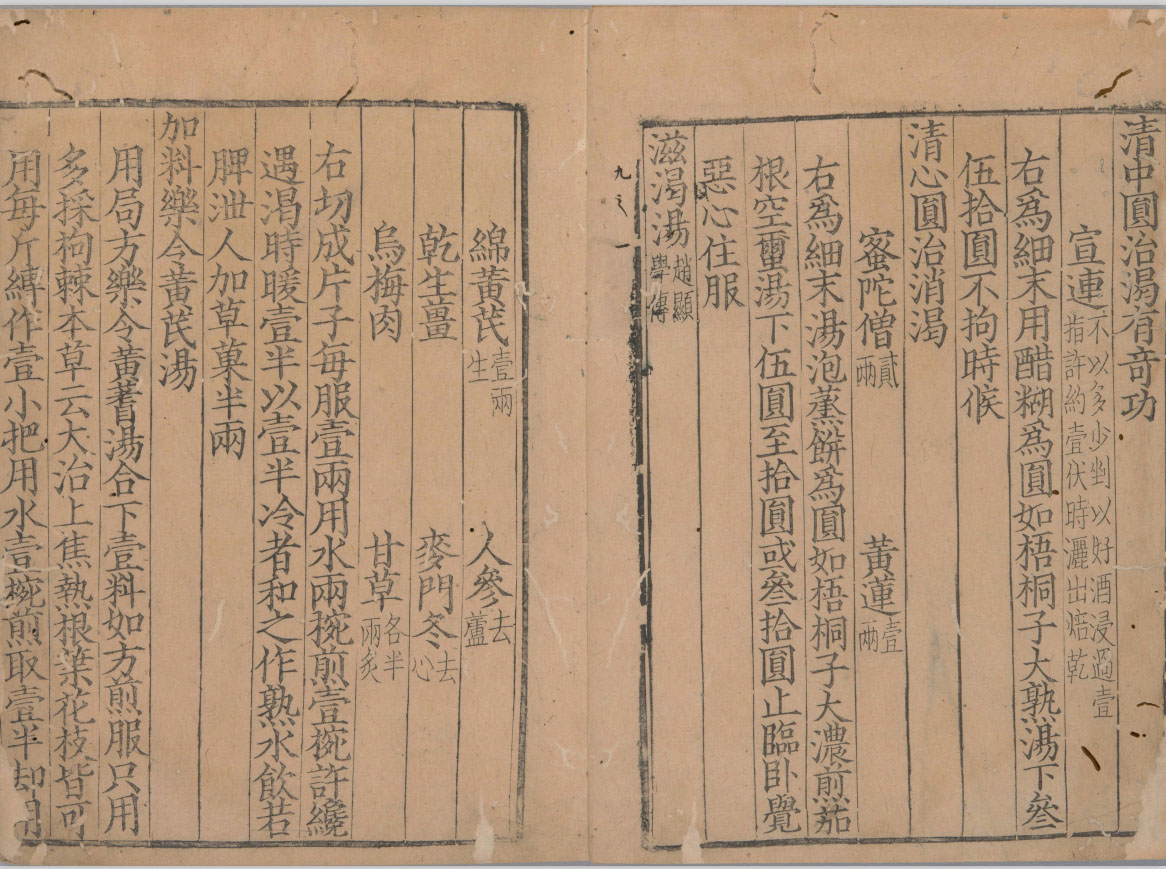 清中圓治渴有竒功
宣連不以多少剉以好酒浸過壹指許約壹伏時灑出焙乾
右爲細末用醋糊爲圓如梧桐子大熟湯下叁
伍拾圓不拘時候
清心圓治消渴
蜜陀僧貳兩 黃蓮壹兩
右爲細末湯泡蒸餅爲圓如梧桐子大濃煎茄
根空䖢湯下伍圓至拾圓或叁拾圓止臨卧覺
惡心住服
滋渴湯趙顯學傳
綿黃芪壹兩生 人參去蘆
乾生薑 麥門冬去心
烏梅肉 甘草各半兩炙
右切成片子每服壹兩用水兩椀煎壹椀許纔
遇渴時暖壹半以壹半冷者和之作熟水飲若
脾泄人加草菓半兩
加料樂令黃芪湯
用局方樂令黃蓍湯合下壹料如方煎服只用
多採枸棘本草云大治上焦熱根葉花枝皆可
用每斤縛作壹小把用水壹椀煎取壹半却用